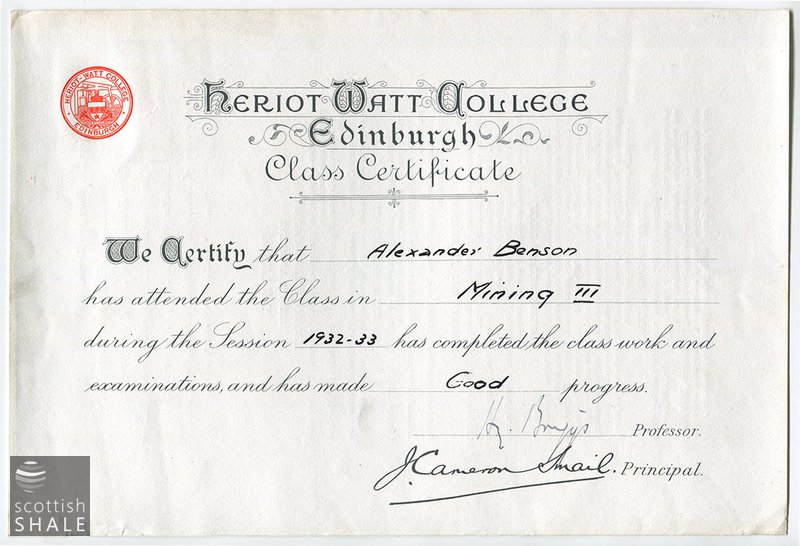 HERIOT-WATT COLLEGE
EDINBURGH
HERIOT WATT COLLEGE
Edinburgh
Class Certificate
We Certify that Alexander Benson
has attended the Class in Mining III
during the Session 1932-33 has completed the class work and
examinations, and has made Good progress.
Hy. Briggs Professor.
J. Cameron Smail. Principal.
scottish
SHALE